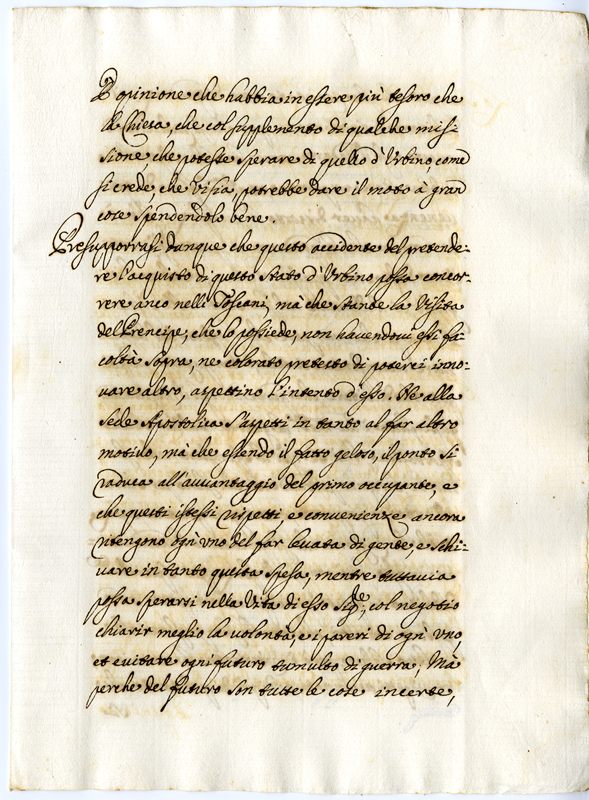 D'opinione che habbia in essere più tesoro che
la Chiesa, che col supplemento di qualche mis-
sione, che potesse sperare di quello d'Urbino, come
si crede, che visia, potrebbe dare il moto à gran
cose spendendolo bene.
Presupporrasi dunque che questo accidente del pretende-
re l'acquisto di questo Stato d'Urbino possa concor-
rere anco nelli Toscani, mà che stante la Vista
del Prencipe, che lo possiede, non havendovi essi fa-
coltà sopra, ne colorato pretesto di poterci inno-
vare altro, aspettino l'intento d'esso. Ne alla
Sede Apostolica s'aspetti in tanto al far altro
motivo, mà che essendo il fatto geloso, il ponto si
raduca all'avvantaggio del primo occupante, e
che questi istessi rispetti, e convenienze ancora
ritengono ogni vno del far levata di gente, e schi-
vare in tanto questa spesa, mentre tuttavia
possa sperarsi nella Vita di esso Sig.re, col negotio
chiarir meglio la volontà, e i pareri di ogni vno,
et evitare ogni futuro tumulto di guerra; Mà
perche del futuro son tutte le cose incerte,